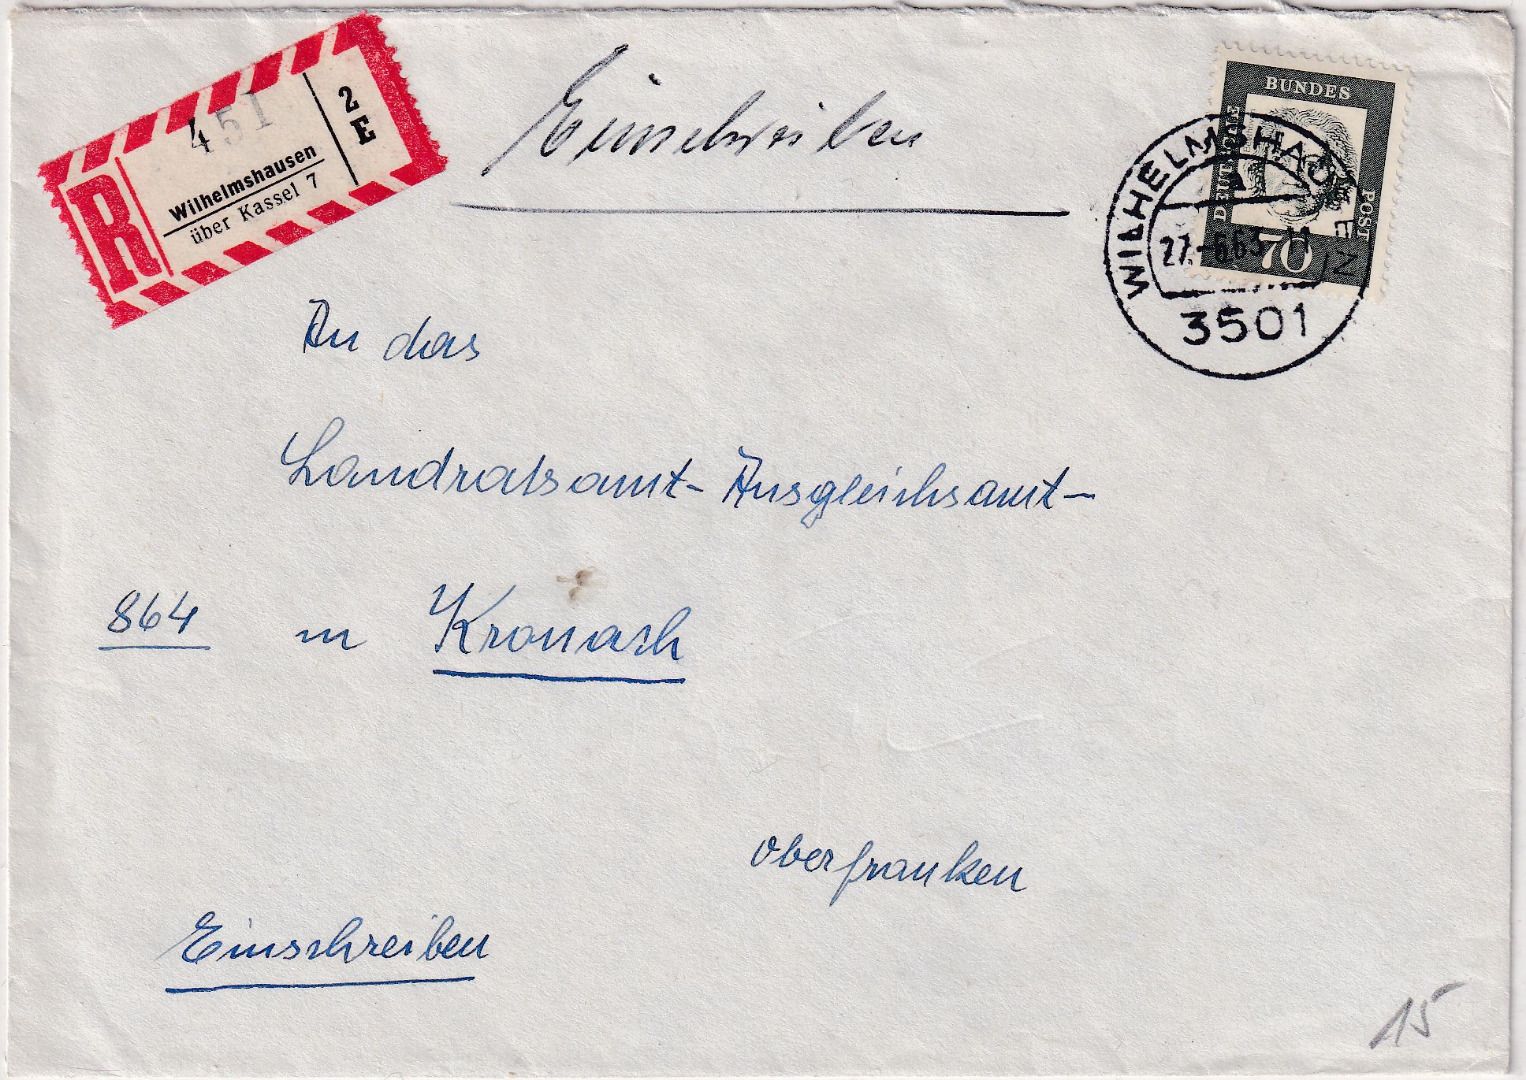 R
451
Wilhelmshausen
über Kassel 7
2
E
Einschreiben
DEUTSCHE
BUNDES
POST
70
WILHELMSHAUSEN
a
27.-6.63.-11
3501
An das
Landratsamt-Ausgleichsamt-
864 in Kronach
Oberfranken
Einschreiben
15